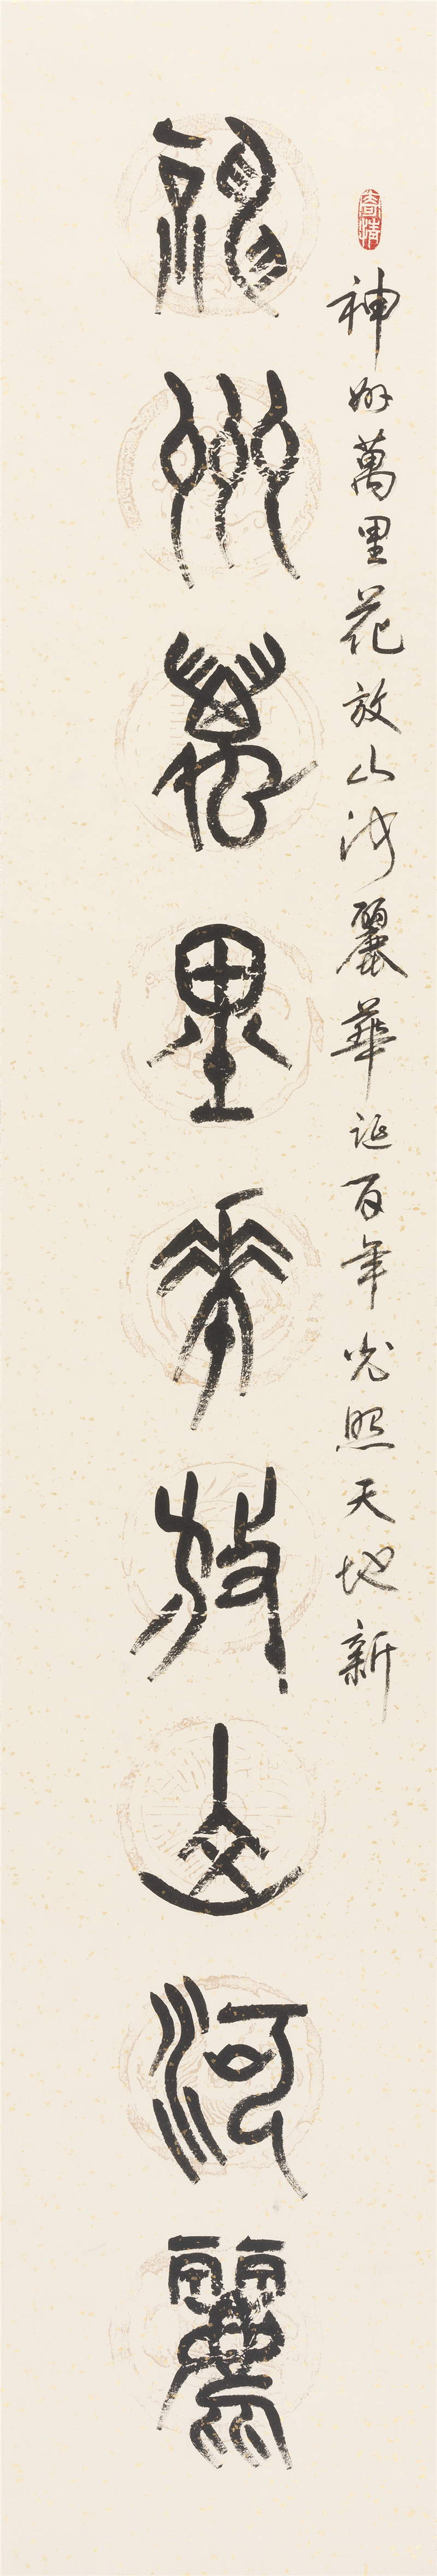 春情
神州萬里花放山河麗華誕百年光照天地新
神州萬里花放山河麗